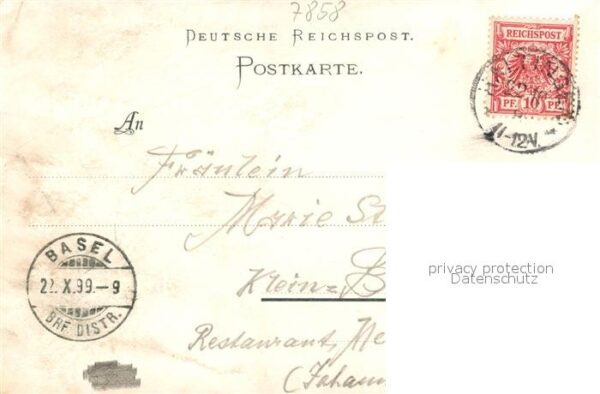 7858
DEUTSCHE REICHSPOST.
POSTKARTE.
REICHSPOST
PF. 10 PF.
11-12V.
An
Fräulein
Marie St
Klein=B
Restaurant, Me
(Johann
BASEL
22.X.99.–9
BRF. DISTR.
privacy protection
Datenschutz